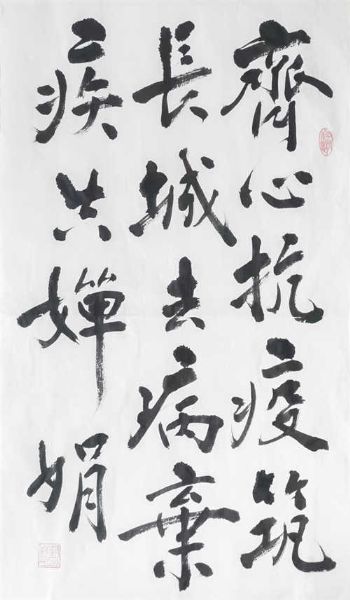 齊心抗疫筑
長城去病棄
疾共嬋娟